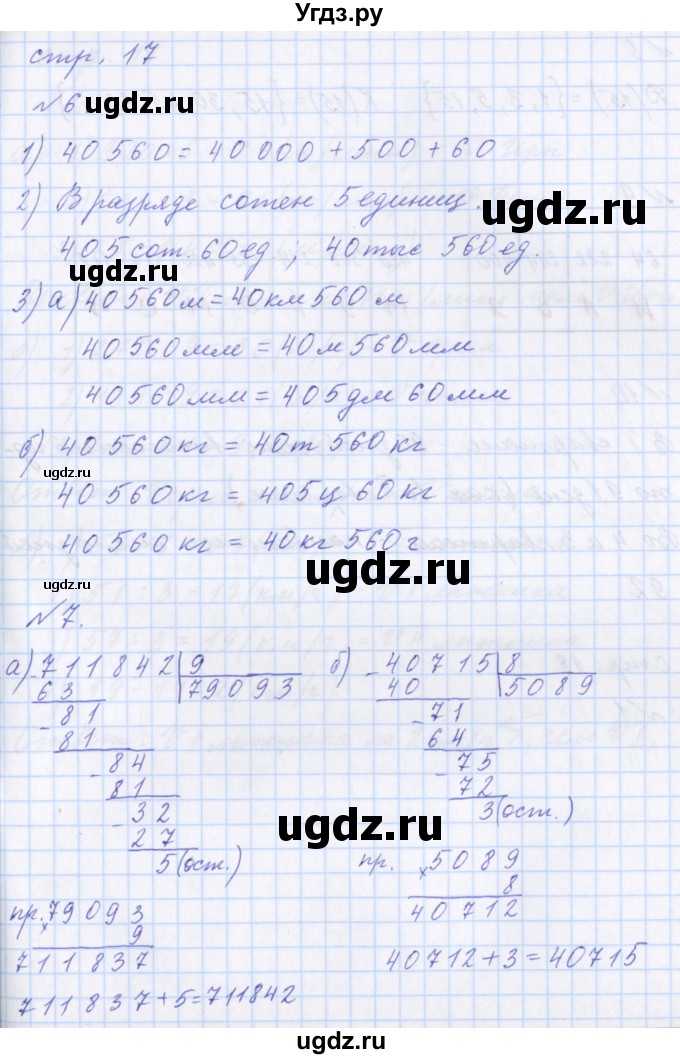 Угдз.ру
стр. 17
№6
1) 40 560 = 40 000 + 500 + 60
2) В разряде сотен 5 единиц.
ugdz.ru
405 сот. 60 ед ; 40 тыс 560 ед.
ugdz.ru
3) а) 40 560 м = 40 км 560 м
40 560 мм = 40 м 560 мм
40 560 мм = 405 дм 60 мм
б) 40 560 кг = 40 т 560 кг
ugdz.ru
40 560 кг = 405 ц 60 кг
40 560 кг = 40 кг 560 г
ugdz.ru
ugdz.ru
№7.
а) - 711842 | 9
63 79093
- 81
81
- 84
81
- 32
27
5 (ост.)
б) - 40715 | 8
40 5089
- 71
64
- 75
72
3 (ост.)
ugdz.ru
пр. 79093
× 9
711837
711837 + 5 = 711842
пр. 5089
× 8
40712
40712 + 3 = 40715
ugdz.ru